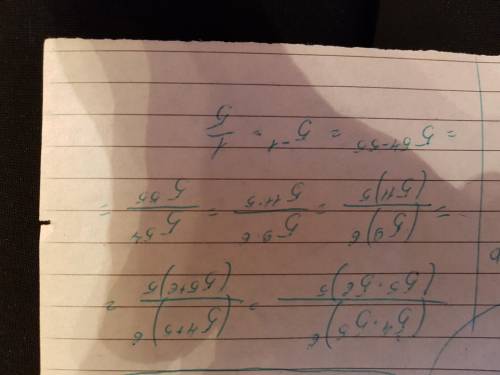 (5^4·5^5)^6/(5^5·5^6)^5 = (5^{4+5})^6/(5^{5+6})^5 =
= (5^9)^6/(5^{11})^5 = 5^{9·6}/5^{11·5} = 5^{54}/5^{55} =
= 5^{54-55} = 5^{-1} = 1/5